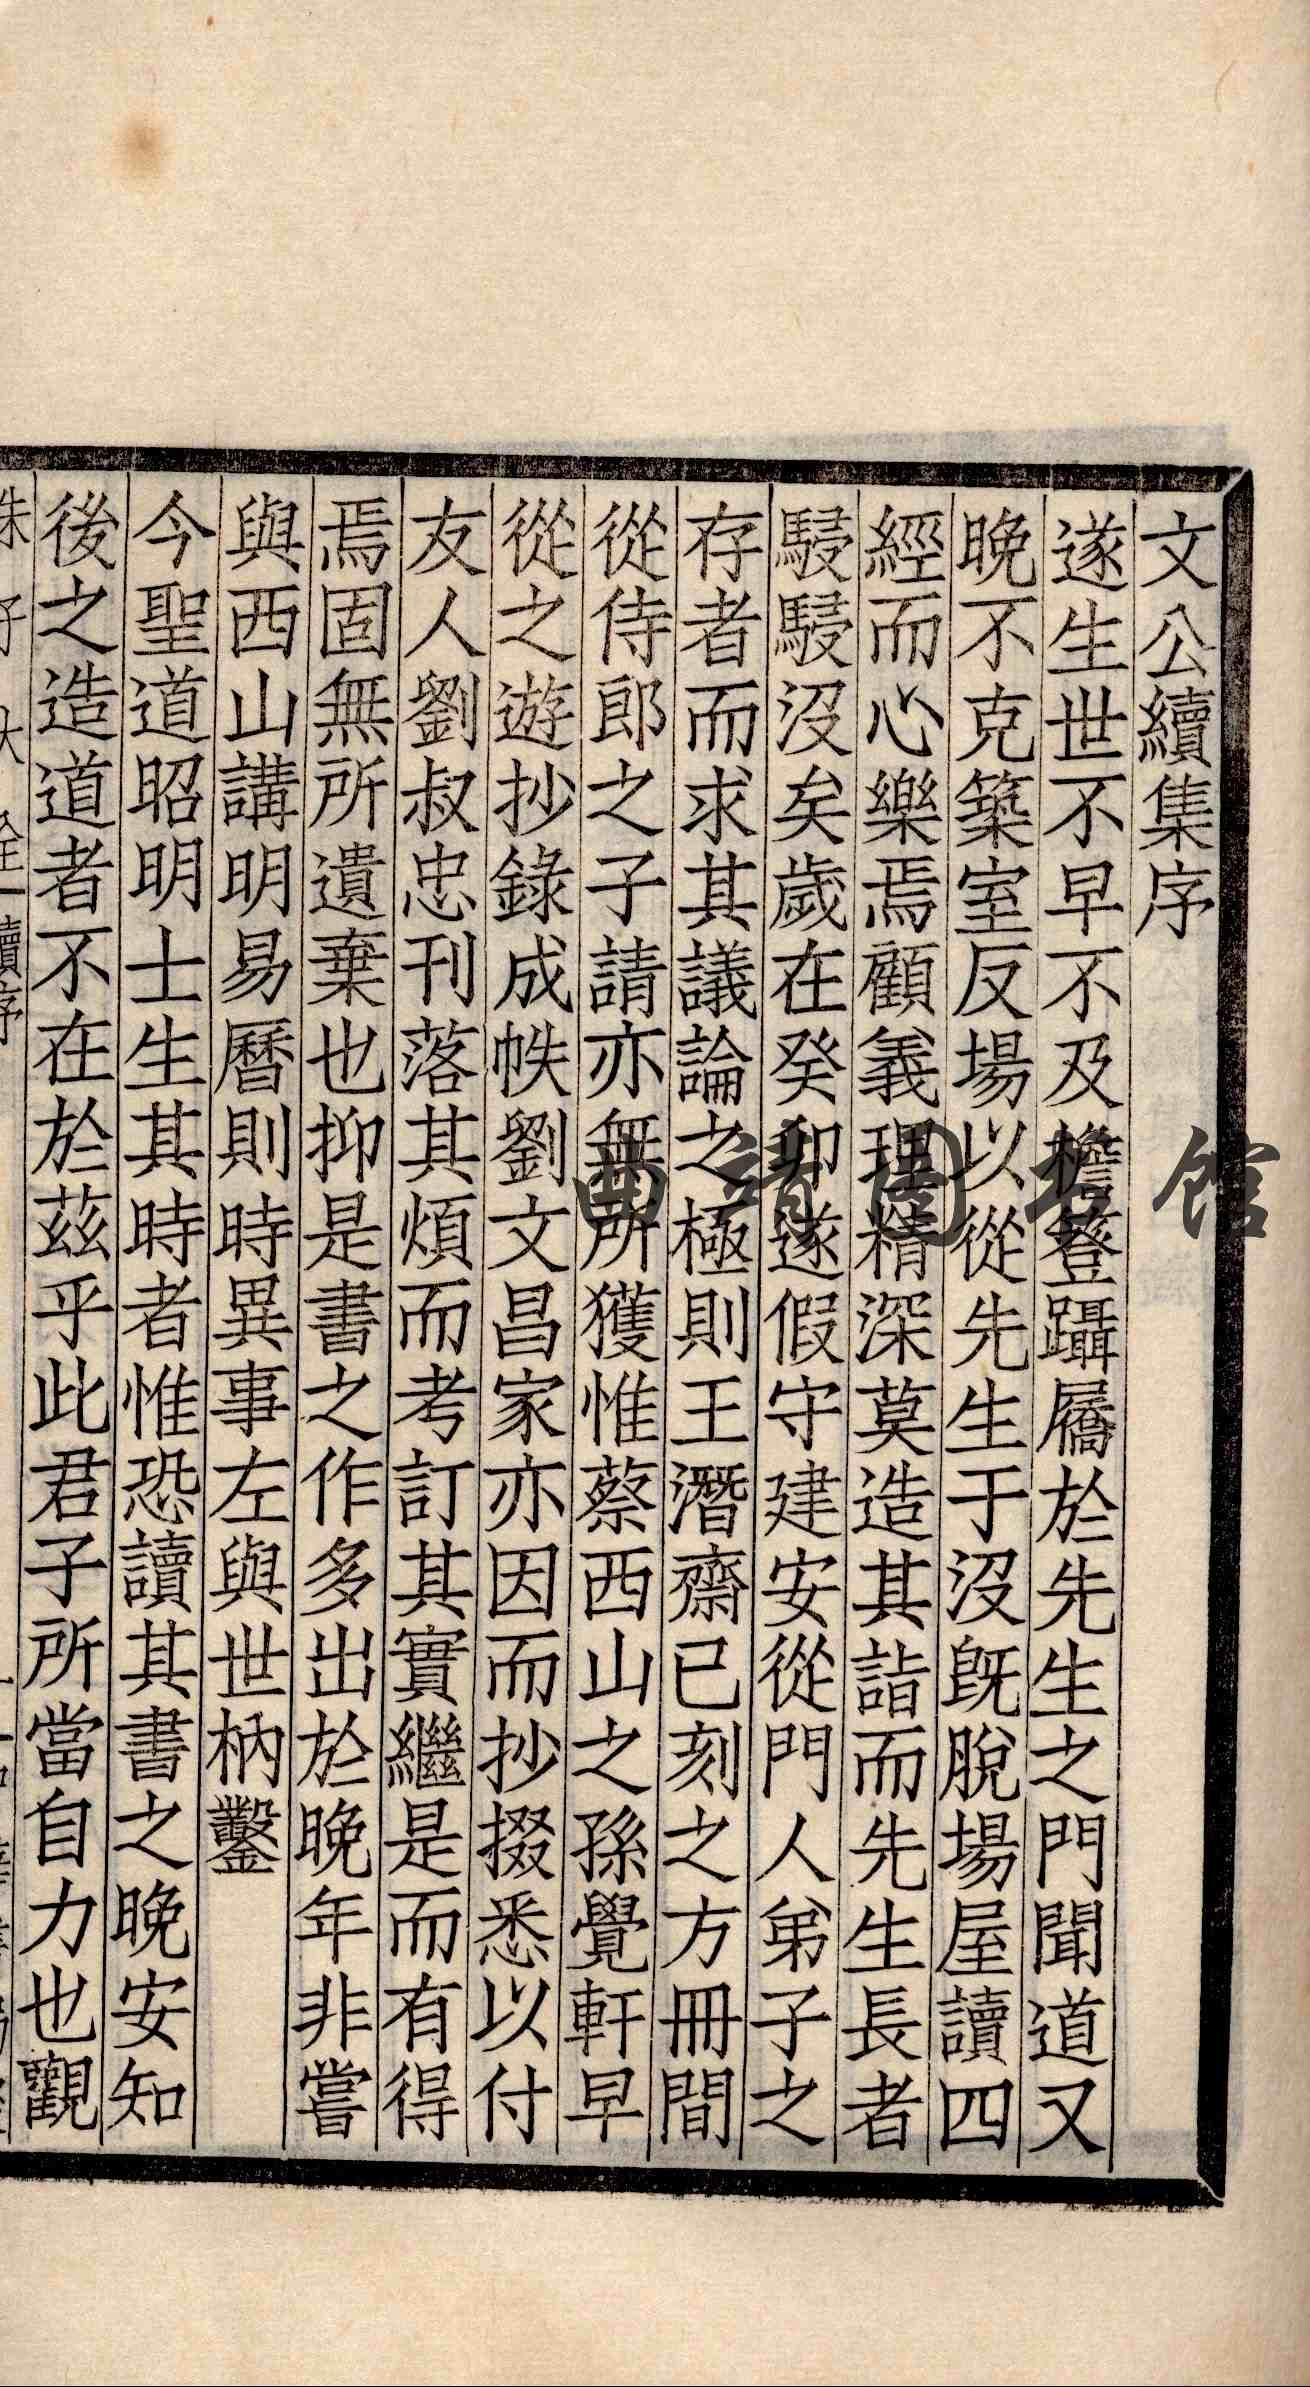 文公續集序
遂生世不早不及檐簦躡屩於先生之門聞道又
晚不克築室反場以從先生于沒既脫場屋讀四
經而心樂焉顧義理精深莫造其詣而先生長者
駸駸沒矣歲在癸卯遂假守建安從門人弟子之
存者而求其議論之極則王潛齋已刻之方冊間
從侍郎之子請亦無所獲惟蔡西山之孫覺軒早
從之遊抄錄成帙劉文昌家亦因而抄掇悉以付
友人劉叔忠刊落其煩而考訂其實繼是而有得
焉固無所遺棄也抑是書之作多出於晚年非嘗
與西山講明易曆則時異事左與世枘鑿
今聖道昭明士生其時者惟恐讀其書之晚安知
後之造道者不在於茲乎此君子所當自力也觀
曲靖图书馆